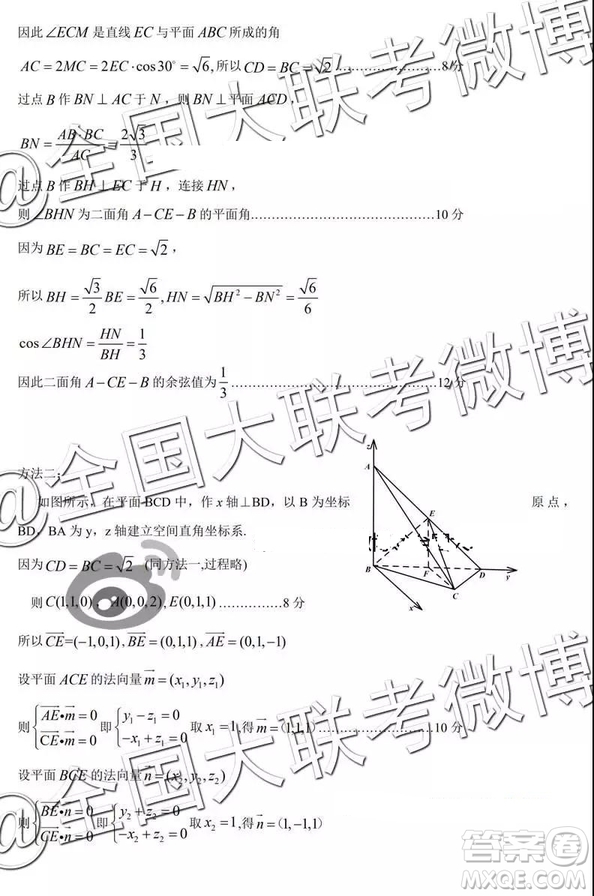 因此∠ECM 是直线 EC 与平面 ABC 所成的角
AC = 2MC = 2EC·cos30° = √6, 所以 CD = BC = √2 ……………………8分
过点 B 作 BN ⊥ AC 于 N，则 BN ⊥ 平面 ACD，
BN = AB·BC/AC = 2√3/3
过点 B 作 BH ⊥ EC 于 H，连接 HN，
则∠BHN 为二面角 A−CE−B 的平面角……………………………10 分
因为 BE = BC = EC = √2，
所以 BH = √3/2 BE = √6/2, HN = √(BH² − BN²) = √6/6
cos∠BHN = HN/BH = 1/3
因此二面角 A−CE−B 的余弦值为 1/3 ……………………………12 分
方法二：
如图所示，在平面 BCD 中，作 x 轴⊥BD，以 B 为坐标原点，
BD，BA 为 y，z 轴建立空间直角坐标系.
因为 CD = BC = √2 (同方法一,过程略)
则 C(1,1,0)，A(0,0,2), E(0,1,1) ……………8 分
所以 CE=(−1,0,1), BE = (0,1,1), AE = (0,1,−1)
设平面 ACE 的法向量 m = (x₁, y₁, z₁)
则 {AE•m = 0 CE•m = 0 即 {y₁ − z₁ = 0 −x₁ + z₁ = 0 取 x₁ = 1, 得 m = (1,1,1) ……………10 分
设平面 BCE 的法向量 n = (x₂, y₂, z₂)
则 {BE•n = 0 CE•n = 0 即 {y₂ + z₂ = 0 −x₂ + z₂ = 0 取 x₂ = 1, 得 n = (1, −1, 1)
z
A
E
B
F
D
y
C
x
@全国大联考微博
@全国大联考微博
@全国大联考微博
答案卷
MXQE.COM